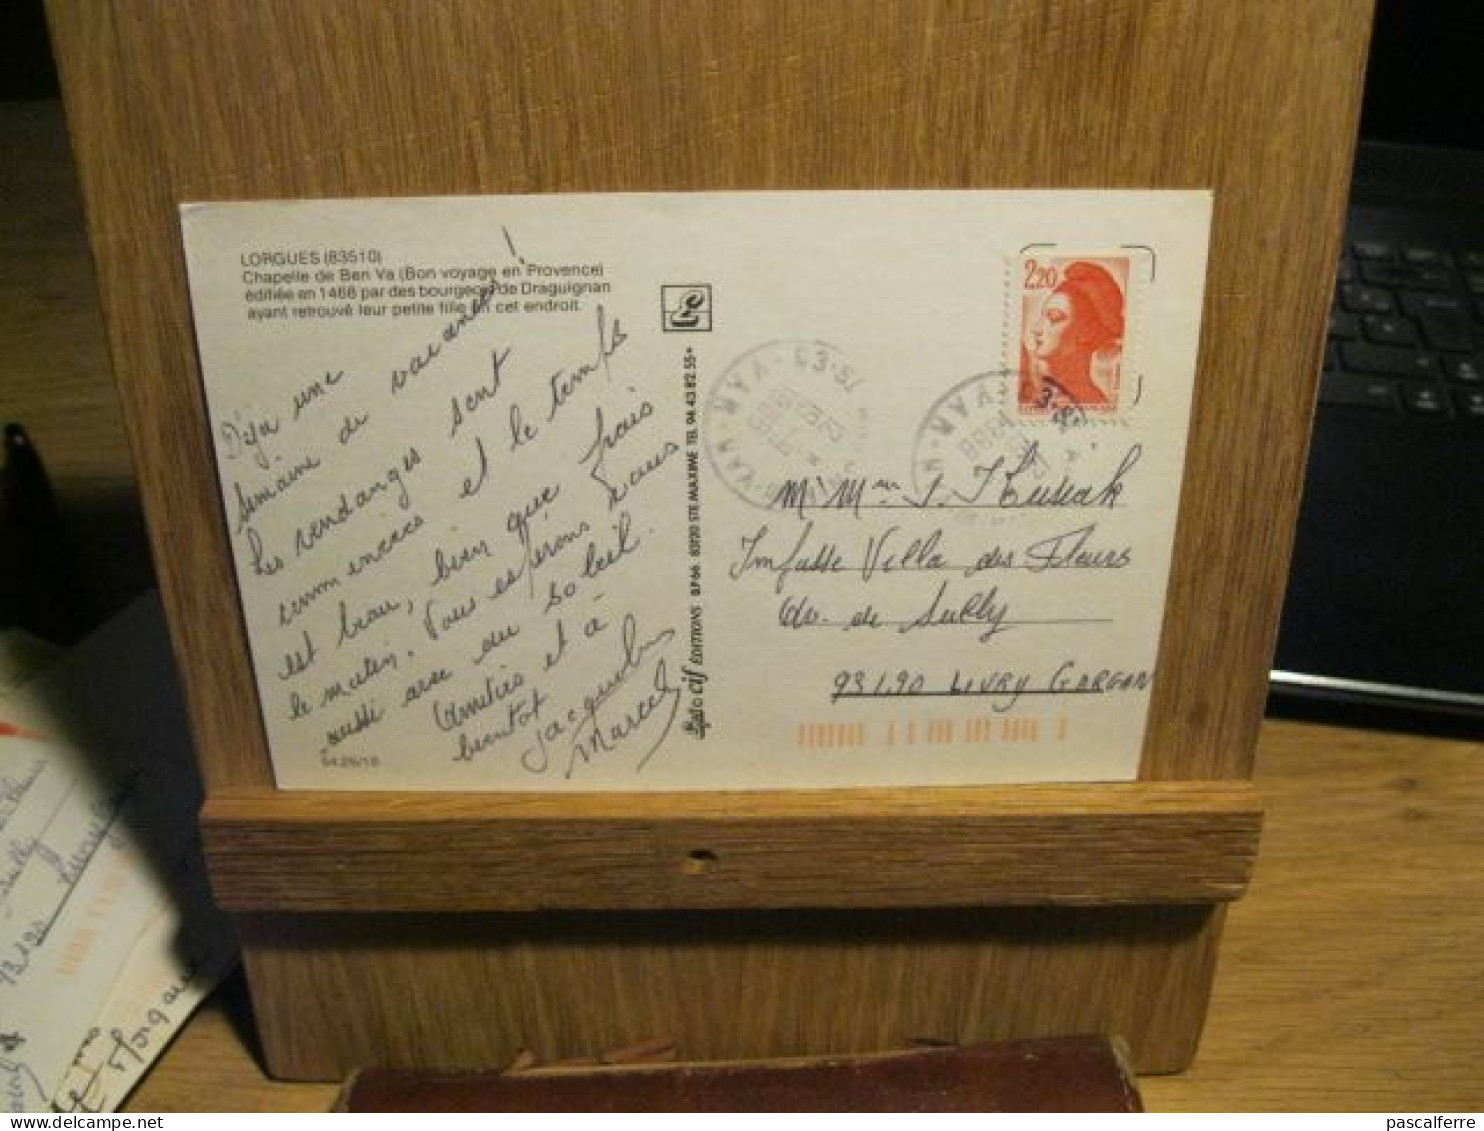 LORGUES (83510)
Chapelle de Ben Va (Bon voyage en Provence)
édifiée en 1468 par des bourgeois de Draguignan
ayant retrouvé leur petite fille en cet endroit.
Déja une
semaine de vacances!
Les vendanges sont
commencées et le temps
est beau, bien que frais
le matin. Vous espérons vous
aussi avec du soleil.
Amitiés et à
bientot
Jacqueline
Marcel
5426/18
EDITIONS BP.66 83120 STE MAXIME TEL. 94.43.82.55+
2,20
M. Mme J.
Impasse Villa des Fleurs
Av. de Sully
93190 LIVRY GARGAN
pascalferre